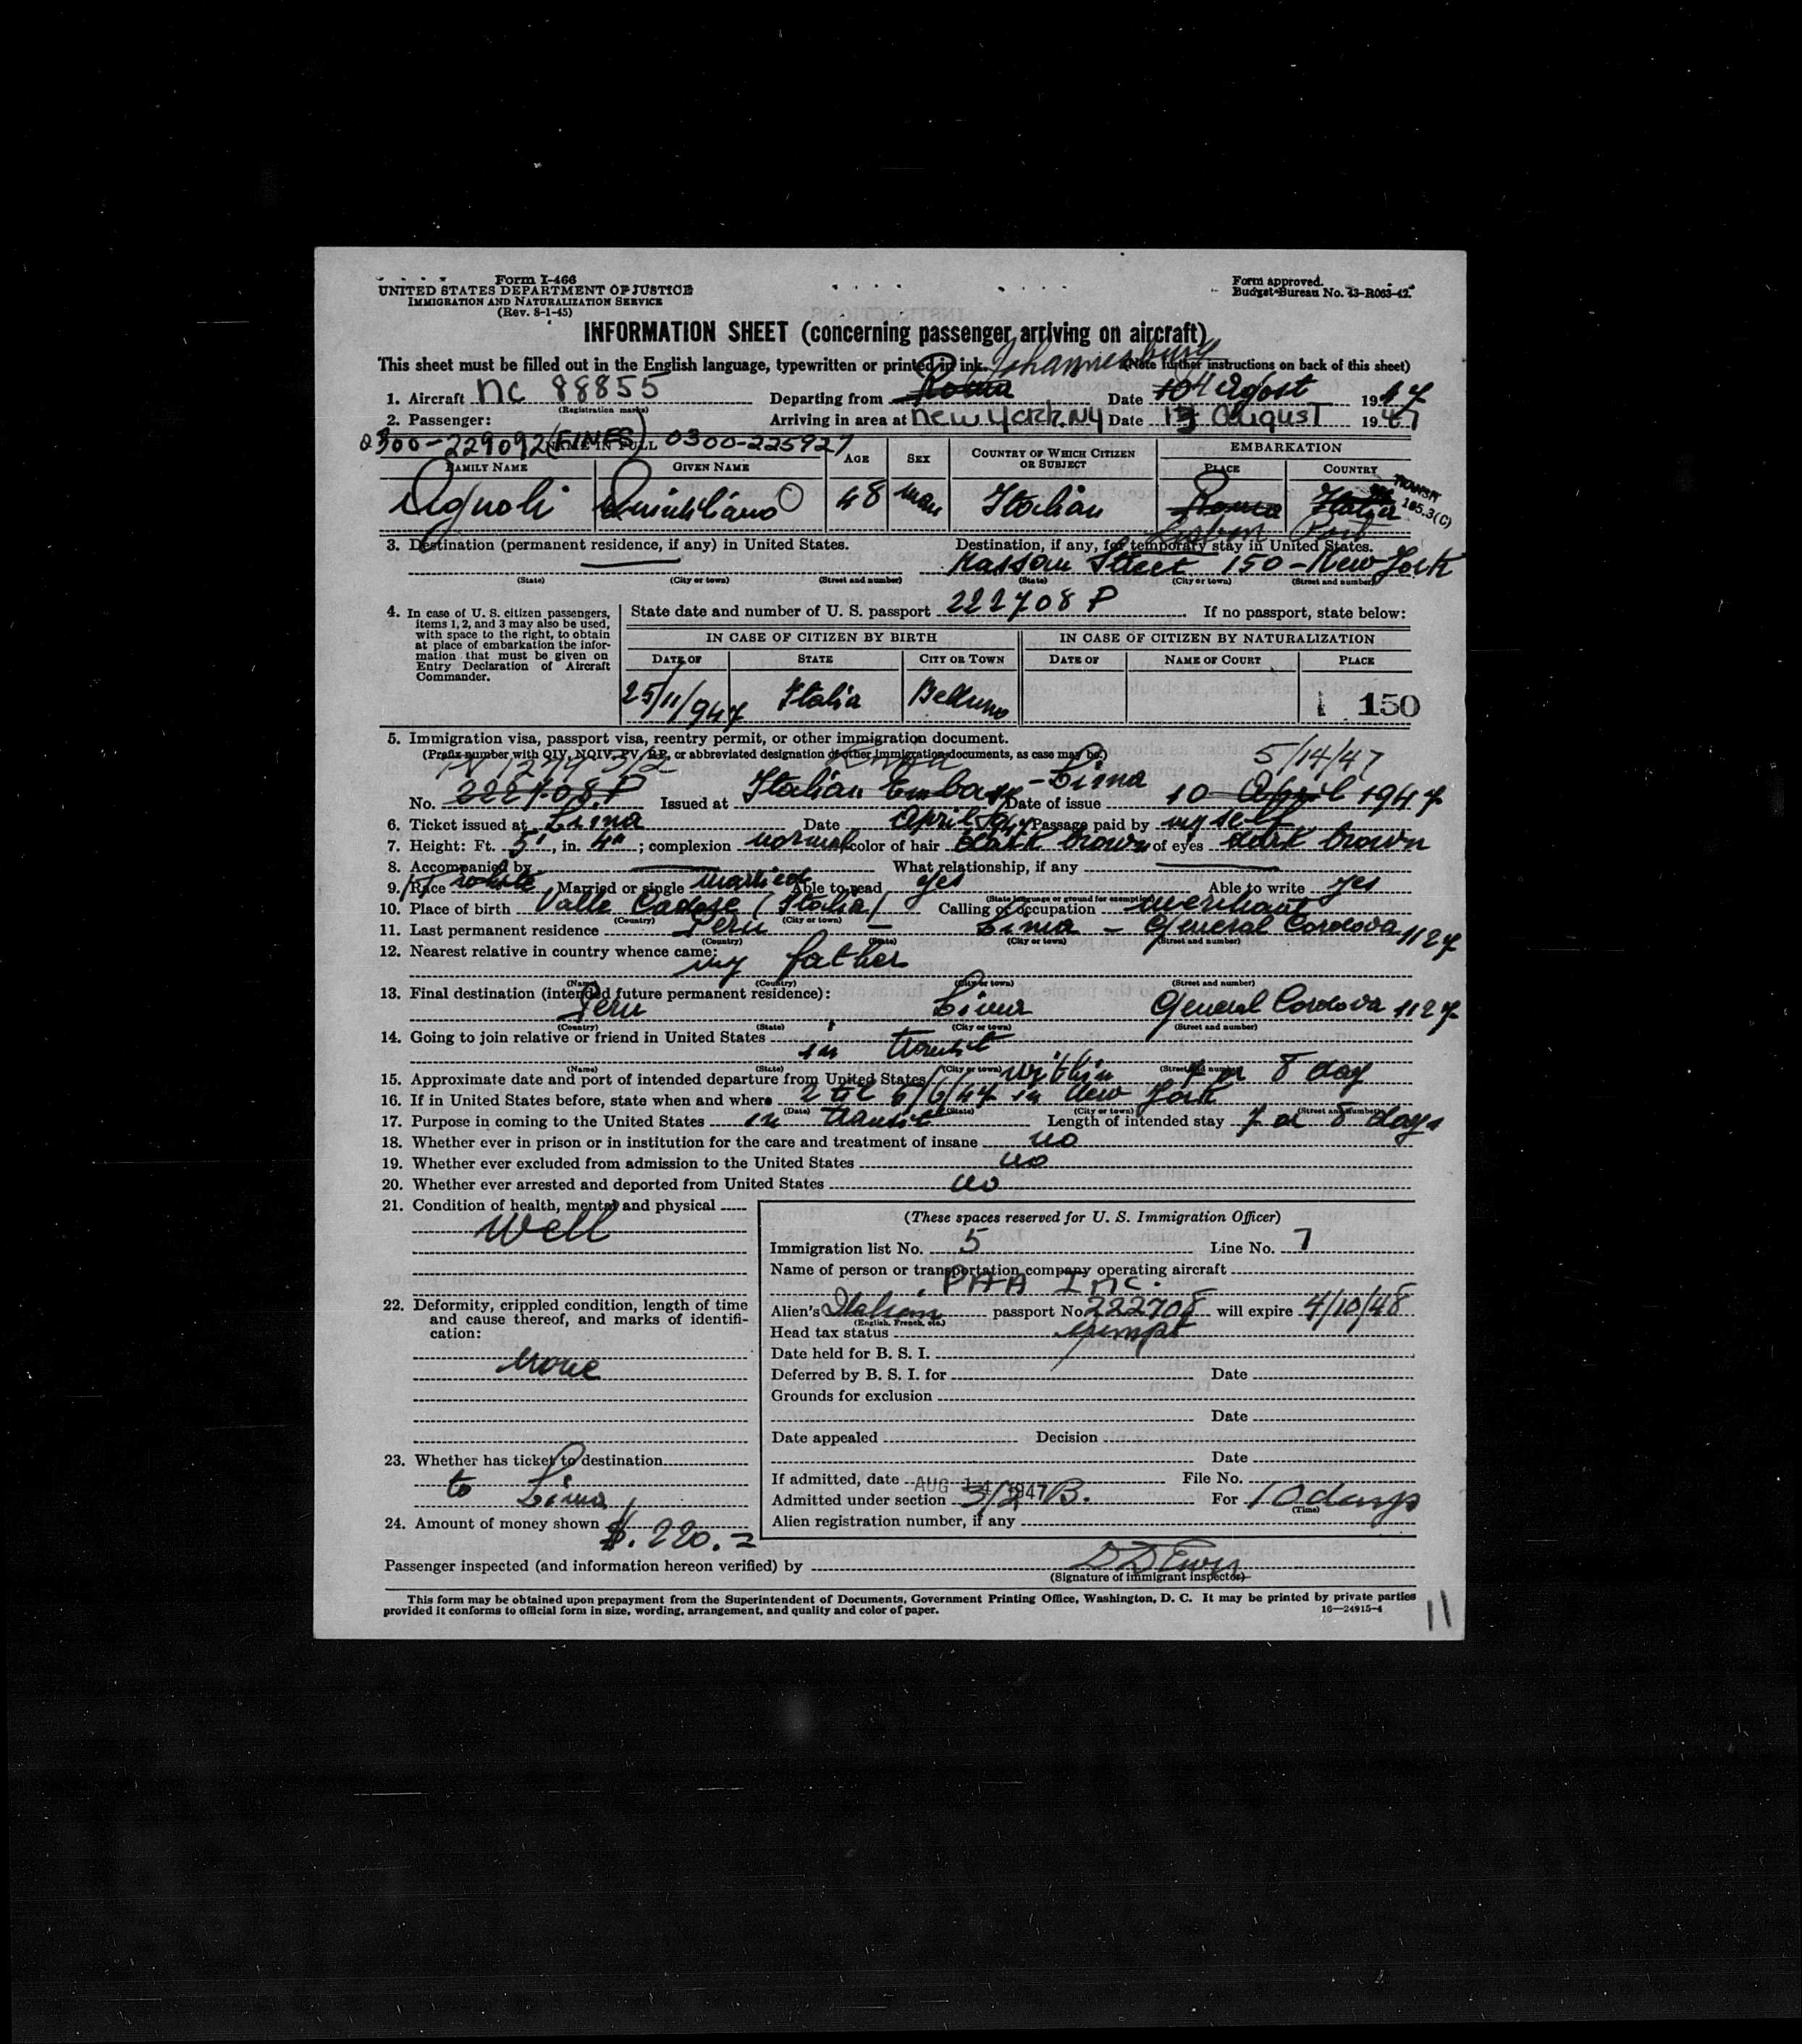 Form I-466
UNITED STATES DEPARTMENT OF JUSTICE
IMMIGRATION AND NATURALIZATION SERVICE
(Rev. 8-1-45)
Form approved.
Budget Bureau No. 43-R063-42.
INFORMATION SHEET (concerning passenger arriving on aircraft)
This sheet must be filled out in the English language, typewritten or printed in ink. (Note further instructions on back of this sheet)
Johannesburg
1. Aircraft NC 88855 (Registration marks) Departing from Roma Date 10 4 Agost 1947
2. Passenger: Arriving in area at New York. NY Date 13 August 1947
0300-229092 (FINES) NAME IN FULL 0300-225927
FAMILY NAME GIVEN NAME AGE SEX COUNTRY OF WHICH CITIZEN OR SUBJECT EMBARKATION
PLACE COUNTRY
TRANSIT
105.3(C)
Agnoli Quintiliano 48 man Italian Roma Italia
Lisbon Port
3. Destination (permanent residence, if any) in United States. Destination, if any, for temporary stay in United States.
Nassau Street 150 - New York
(State) (City or town) (Street and number) (State) (City or town) (Street and number)
4. In case of U. S. citizen passengers, items 1, 2, and 3 may also be used, with space to the right, to obtain at place of embarkation the information that must be given on Entry Declaration of Aircraft Commander.
State date and number of U. S. passport 222708 P If no passport, state below:
IN CASE OF CITIZEN BY BIRTH IN CASE OF CITIZEN BY NATURALIZATION
DATE OF STATE CITY OR TOWN DATE OF NAME OF COURT PLACE
25/11/947 Italia Belluno 150
5. Immigration visa, passport visa, reentry permit, or other immigration document.
(Prefix number with QIV, NQIV, PV, RP, or abbreviated designation of other immigration documents, as case may be.)
5/14/47
No. 222708 P Issued at Italian Embass - Lima Date of issue 10 April 1947
6. Ticket issued at Lima Date April 947 Passage paid by myself
7. Height: Ft. 5', in. 4"; complexion normal color of hair dark brown of eyes dark brown
8. Accompanied by What relationship, if any
9. Race white Married or single married Able to read yes Able to write yes
(State language or ground for exemption)
10. Place of birth Valle Cadore (Italia) Calling or occupation merchant
(Country) (City or town)
11. Last permanent residence Peru - Lima - General Cordova 1127
(Country) (State) (City or town) (Street and number)
12. Nearest relative in country whence came: my father
(Name) (Country) (City or town) (Street and number)
13. Final destination (intended future permanent residence):
Peru Lima General Cordova 1127
(Country) (State) (City or town) (Street and number)
14. Going to join relative or friend in United States
in transit
(Name) (State) (City or town) (Street and number)
15. Approximate date and port of intended departure from United States within 7 or 8 day
16. If in United States before, state when and where 2 til 6/6/47 in New York
(Date) (State) (City or town) (Street and number)
17. Purpose in coming to the United States in transit Length of intended stay 7 or 8 days
18. Whether ever in prison or in institution for the care and treatment of insane no
19. Whether ever excluded from admission to the United States no
20. Whether ever arrested and deported from United States no
21. Condition of health, mental and physical
Well
22. Deformity, crippled condition, length of time and cause thereof, and marks of identification:
None
23. Whether has ticket to destination
to Lima
24. Amount of money shown $. 220.=
(These spaces reserved for U. S. Immigration Officer)
Immigration list No. 5 Line No. 7
Name of person or transportation company operating aircraft
PAA INC.
Alien's Italian passport No. 222708 will expire 4/10/48
(English, French, etc.)
Head tax status exempt
Date held for B. S. I.
Deferred by B. S. I. for Date
Grounds for exclusion
Date
Date appealed Decision
Date
If admitted, date AUG 14 1947 File No.
Admitted under section 3/2 B. For 10 days
(Time)
Alien registration number, if any
Passenger inspected (and information hereon verified) by
(Signature of immigrant inspector)
This form may be obtained upon prepayment from the Superintendent of Documents, Government Printing Office, Washington, D. C. It may be printed by private parties
provided it conforms to official form in size, wording, arrangement, and quality and color of paper. 16—24915-4
11